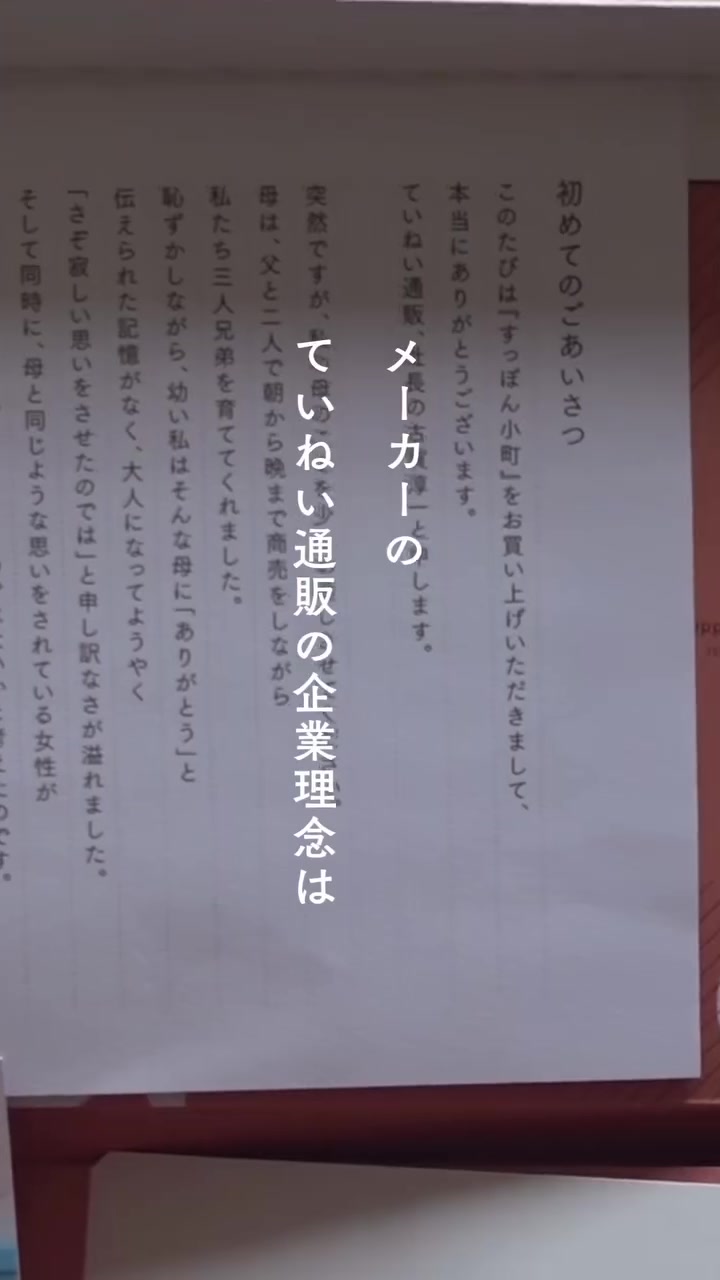 メーカーの
ていねい通販の企業理念は
初めてのごあいさつ
このたびは『すっぽん小町』をお買い上げいただきまして、
本当にありがとうございます。
ていねい通販、社長の古賀淳一と申します。
突然ですが、私の母の
母は、父と二人で朝から晩まで商売をしながら
私たち三人兄弟を育ててくれました。
恥ずかしながら、幼い私はそんな母に「ありがとう」と
伝えられた記憶がなく、大人になってようやく
「さぞ寂しい思いをさせたのでは」と申し訳なさが溢れました。
そして同時に、母と同じような思いをされている女性が